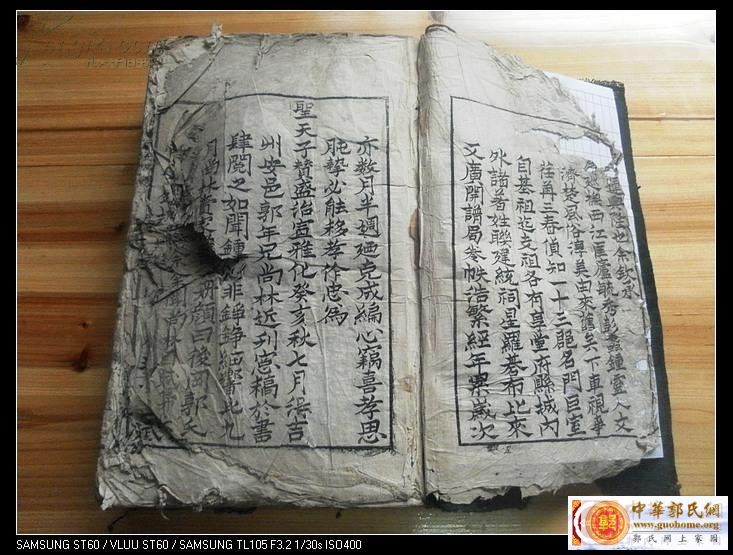 興陞也余欽承
撫西江匡廬毓秀彭蠡鍾靈人文
濟楚風俗淳美由來舊矣下車視事
荏苒三春偵知一十三郡名門巨室
自基祖迄支祖各有享堂府縣城內
外諸著姓聯建統祠星羅碁布比來
又廣開譜局卷帙浩繁經年累歲次
亦數月半週廼克成編心竊喜孝思
肫摯必能移孝作忠為
聖天子贊盛治宣雅化癸亥秋七月澣吉
州安邑郭年兄尚林近列窓稿於書
肆閱之如聞鐘 非錚錚細響比九
月尚林 顏曰後河郭氏
SAMSUNG ST60 / VLUU ST60 / SAMSUNG TL105 F3.2 1/30s ISO400
中華郭氏網
www.guohome.org
郭氏網上家園